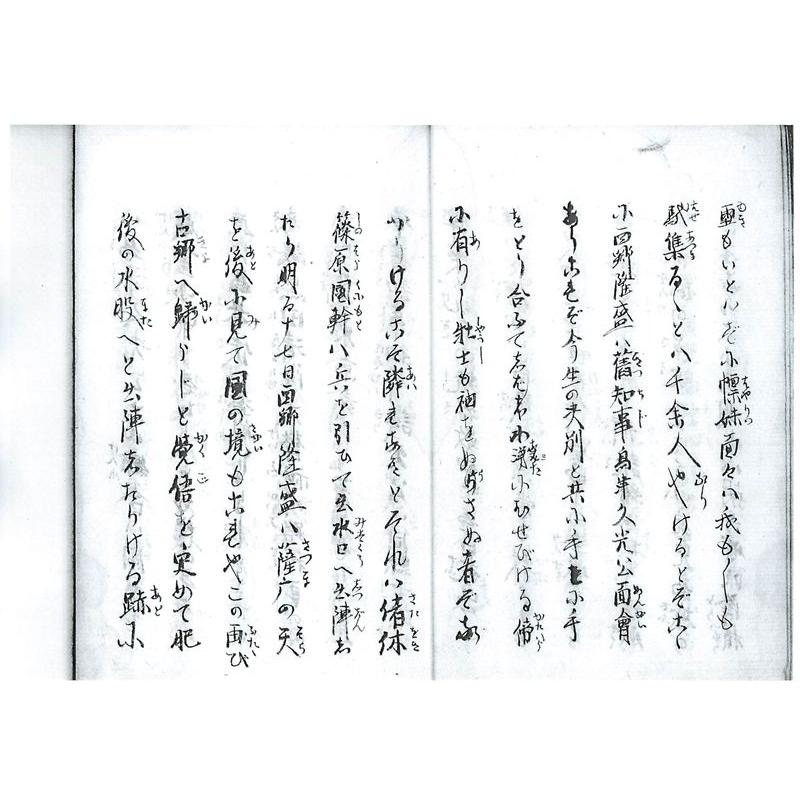 悪もいとハずに慓悍面々ハ我も〳〵も
馳集る人々ハ千余人也けるとぞこゝ
に西郷隆盛ハ舊知事島津久光公面會
ありこれぞ今生の夫別と共に手に手
をとり合ふてしたしき小涙にむせびける傍
に有りし壯士も袖をぬらさぬ者ぞな
かりけるこそ隣れなりとそれハ偖休
篠原國幹ハ兵を引ひて出水口へ出陣し
たり明る十七日西郷隆盛ハ薩戸の天
を後に見て國の境もこれやこの再び
古郷へ歸らじと覺悟を定めて肥
後の水股へと出陣したりける跡に